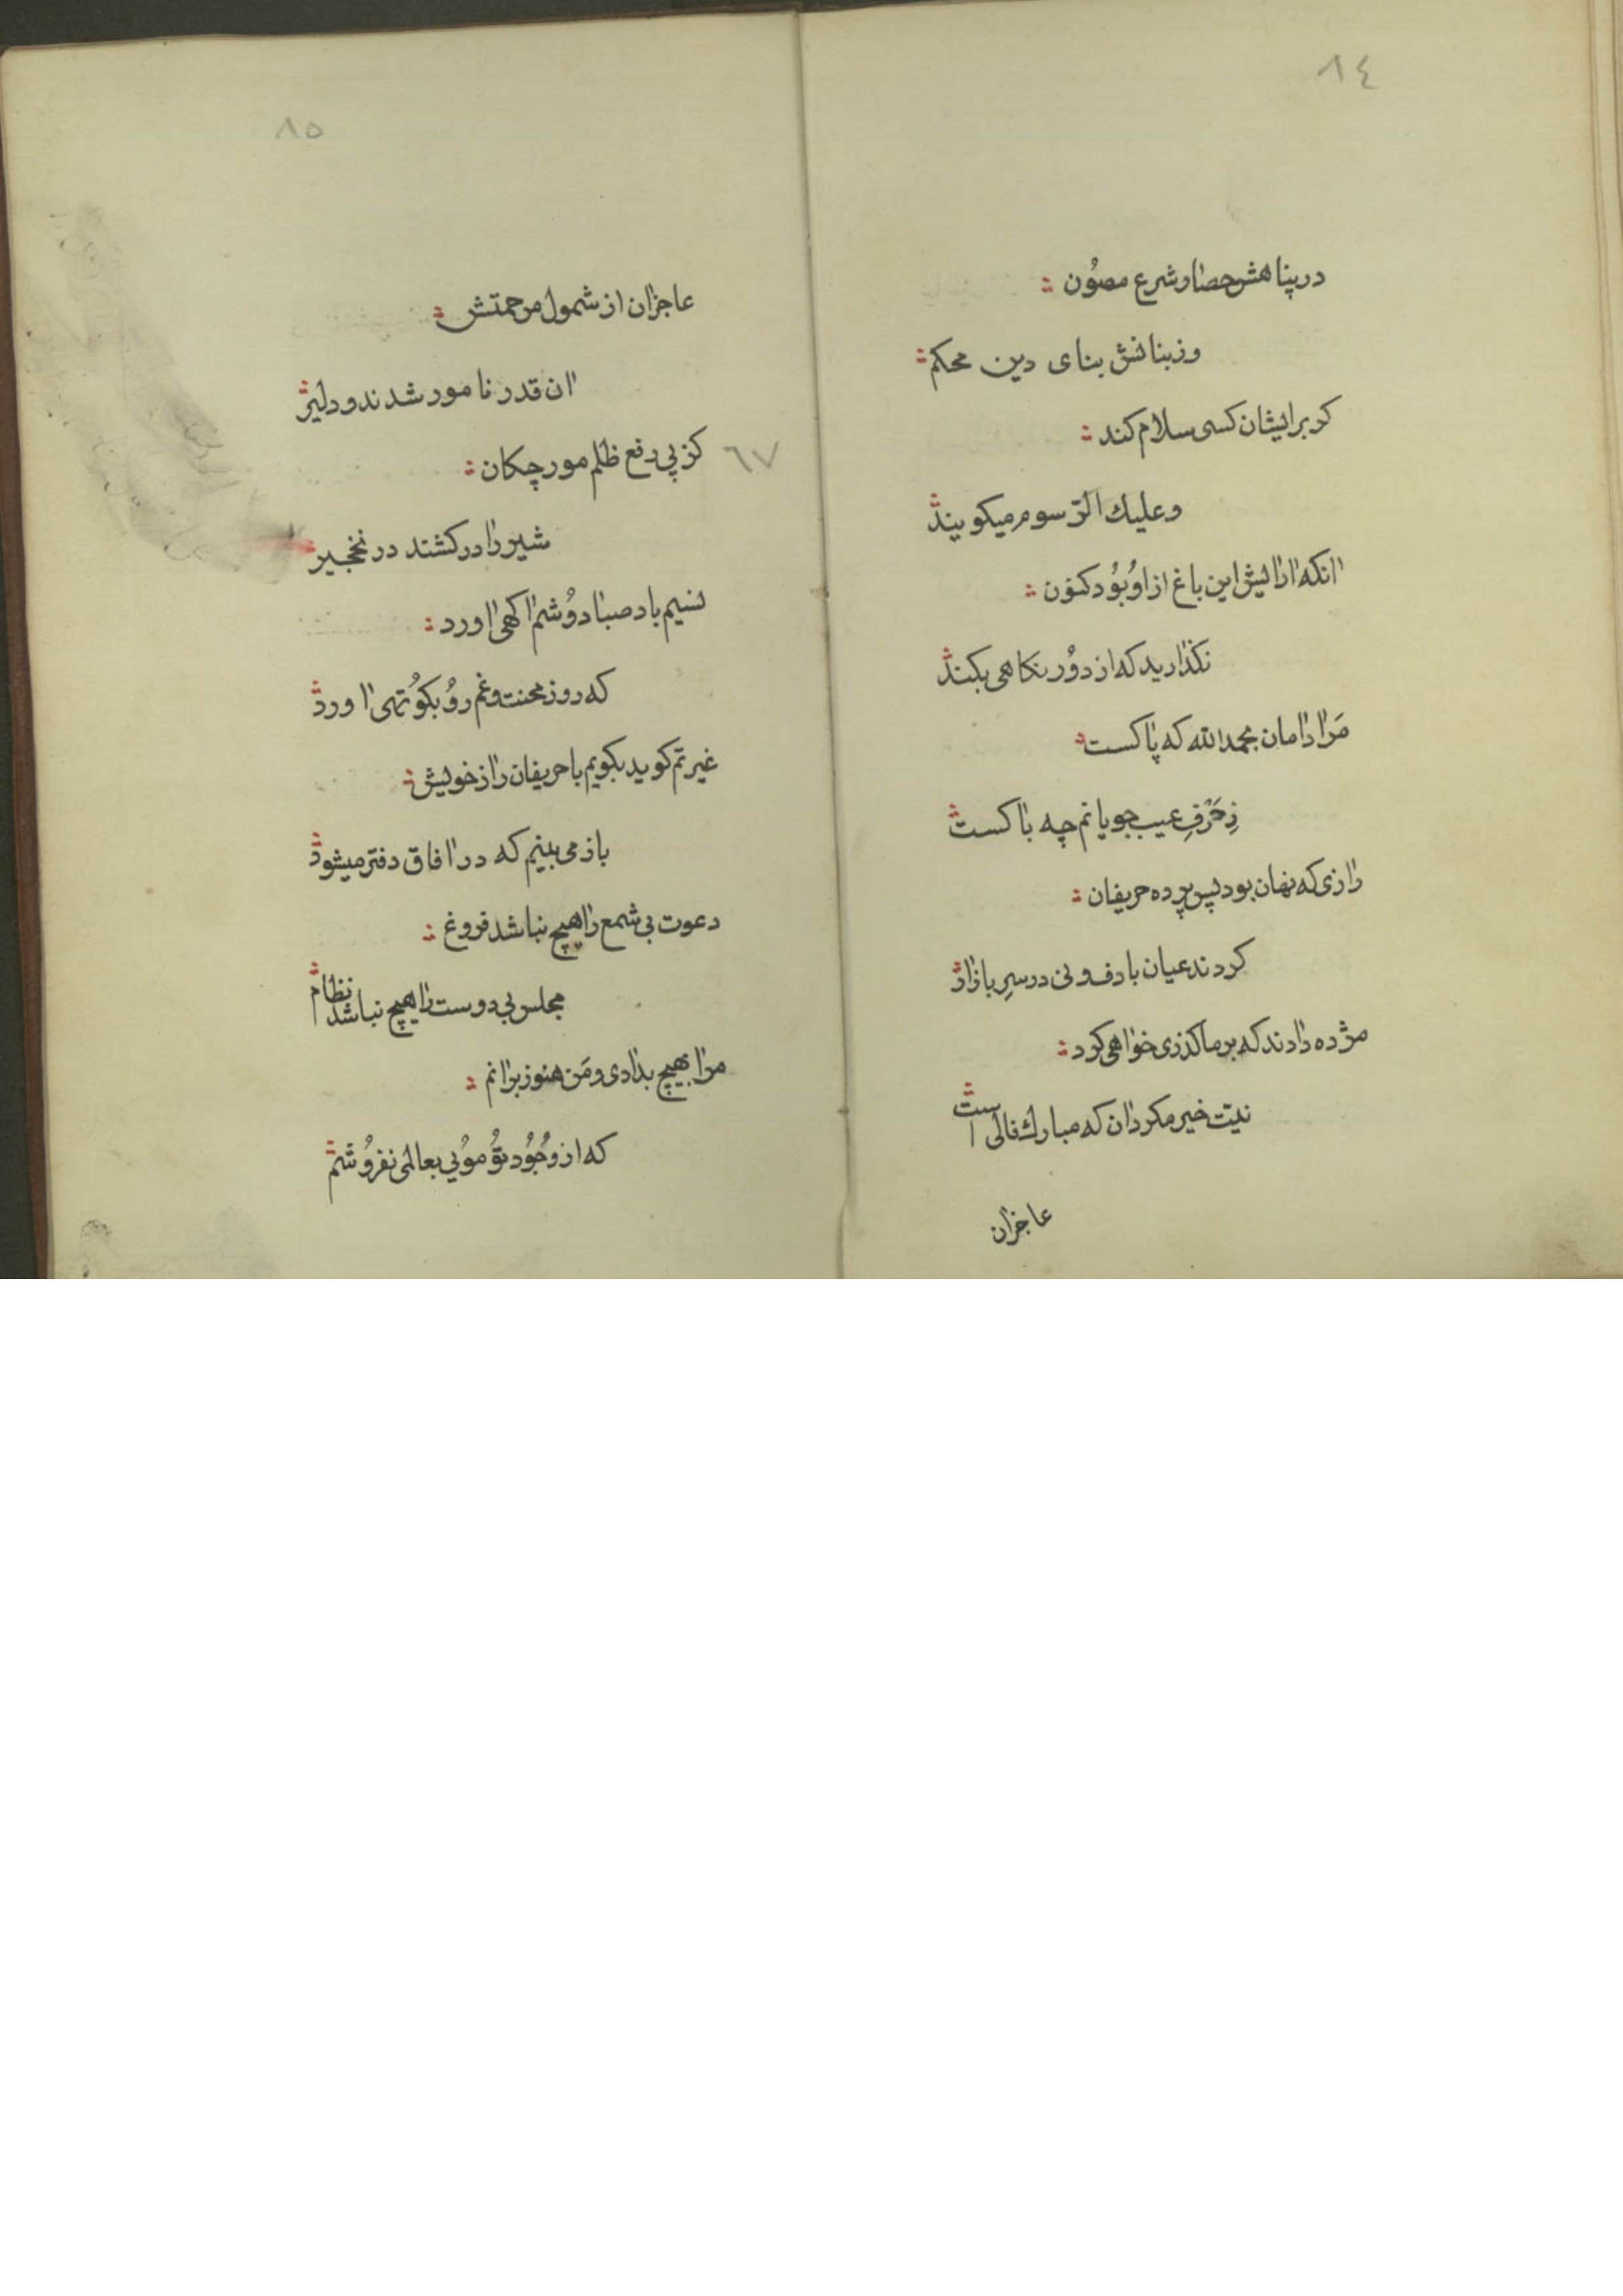 ٨٤
در پناهش حصار شرع مصُون
وز بنانش بنای دین محکم
کر برایشان کسی سلام کند
وعلیك الرّسوم میکویند
آنکه آرایش این باغ از اوُ بوُد کنون
نکذارید که از دوُر نکاهی بکند
مَرا دامان بحمدالله که پاکست
زِحَرْفِ عیب جویانم چه باکست
رازی که نهان بود پس پرده حریفان
کردند عیان با دف و نی در سرِ بازار
مژده دادند که بر ما کذری خواهی کرد
نیّت خیر مکردان که مبارك فالی است
عاجزان
٨٥
عاجزان از شمول مرحمتش
آن قدر نامور شدند و دلیر
٦٧
کز پی دفع ظلم مورچکان
شیر را درکشتند در نخجیر
نسیم باد صبا دوُشم آکهی آورد
که روز محنت و غم روُ بکوُتهی آورد
غیرتم کوید بکویم با حریفان راز خویش
باز می بینم که در آفاق دفتر میشود
دعوت بی شمع را هیچ نباشد فروغ
مجلس بی دوست را هیچ نباشد نظام
مرا بهیچ بدادی و مَن هنوز برانم
که از وُجُود توُ موُیی بعالمی نفروُشم